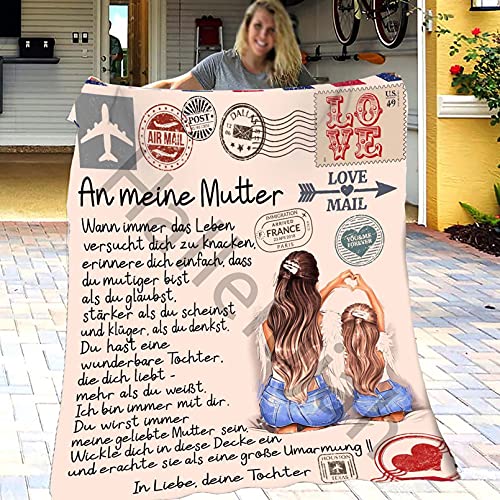 POST
AIR MAIL
DALLAS
U.S.
49
LOVE
An meine Mutter
LOVE
MAIL
IMMIGRATION
ARRIVED
FRANCE
PARIS
YOU&ME
FOREVER
Wann immer das Leben
versucht dich zu knacken,
erinnere dich einfach, dass
du mutiger bist
als du glaubst,
stärker als du scheinst
und klüger, als du denkst.
Du hast eine
wunderbare Tochter,
die dich liebt -
mehr als du weißt.
Ich bin immer mit dir.
Du wirst immer
meine geliebte Mutter sein.
Wickle dich in diese Decke ein
und erachte sie als eine große Umarmung !!
In Liebe, deine Tochter
HOUSTON
TEXAS